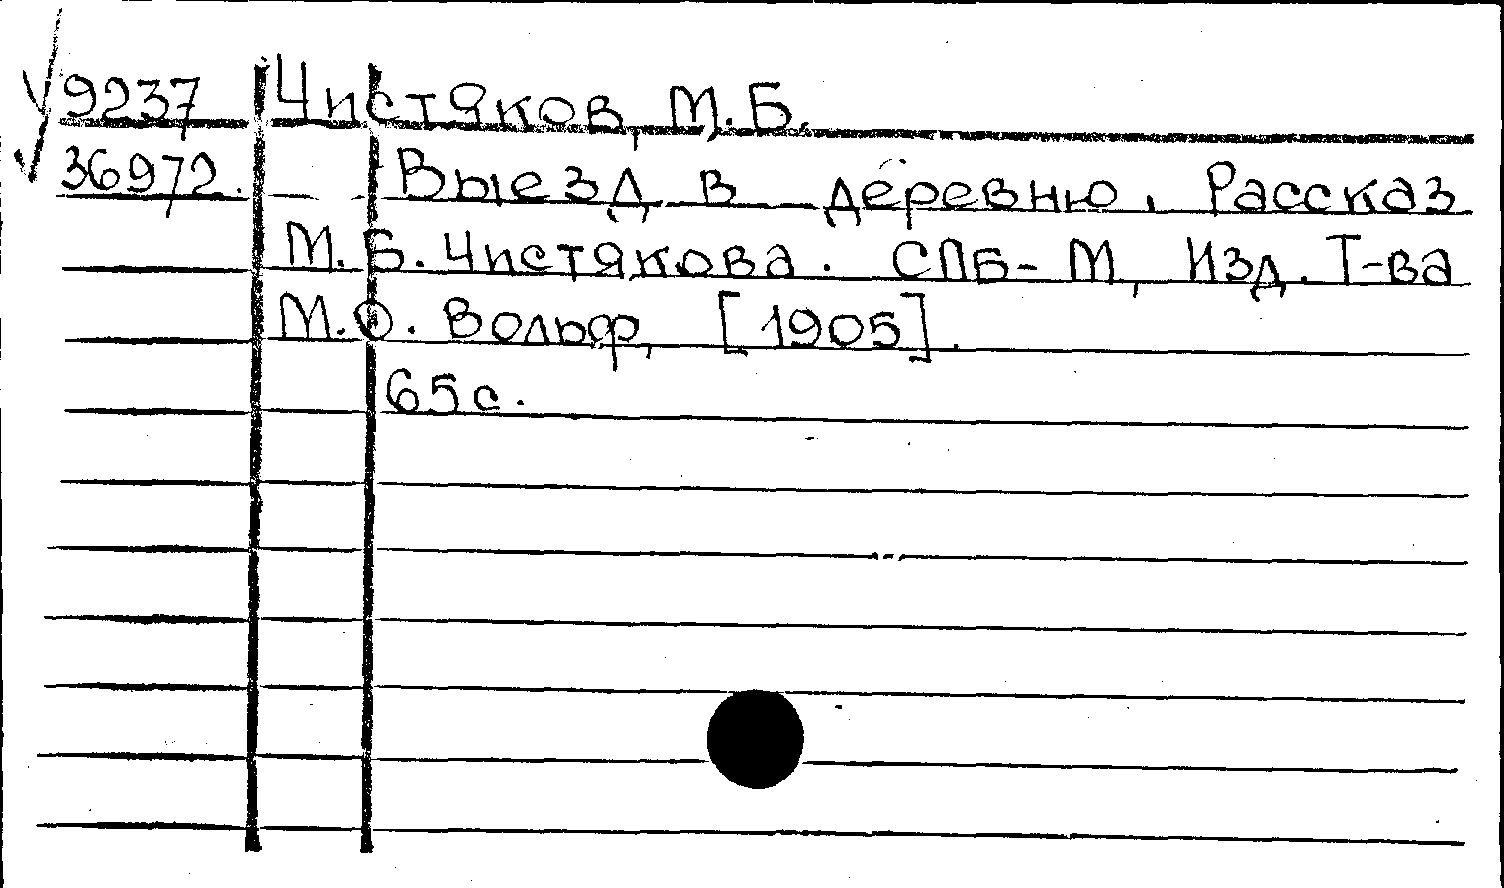 9237 Чистяков, М.Б.
36972. Выезд в деревню. Рассказ
М.Б. Чистякова. СПБ-М, Изд. Т-ва
М.О. Вольф, [1905].
65 с.